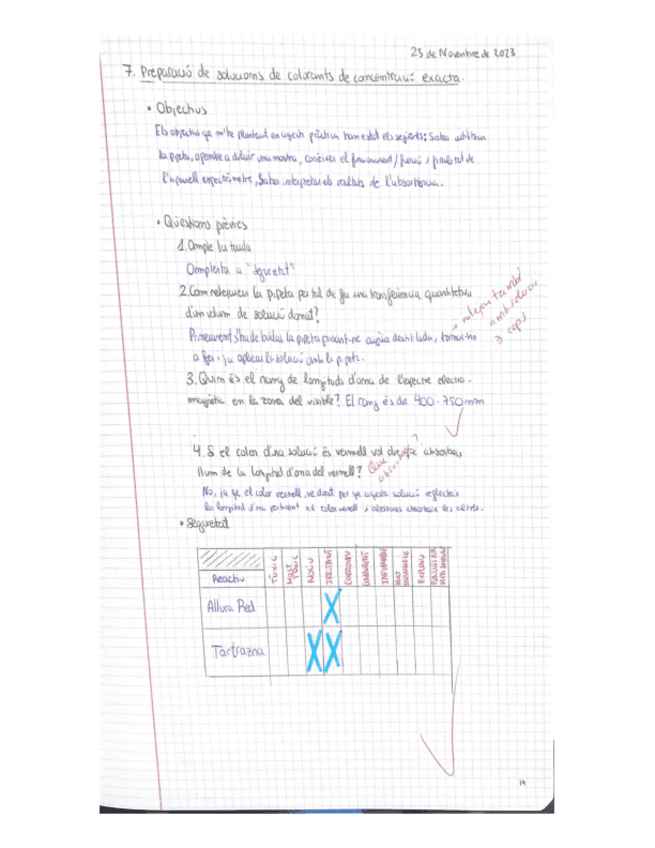 23 de Novembre de 2023
7. Preparació de solucions de colorants de concentració exacta.
• Objectius
Els objectius que m'he plantejat en aquesta pràctica han estat els següents: Saber utilitzar
la pipeta, aprendre a diluir una mostra, conèixer el funcionament /
l'aparell espectròmetre, Saber interpretar els resultats de l'absorbància.
• Qüestions prèvies
1. Omple la taula
Omplerta a "seguretat"
2. Com netegem la pipeta per tal de fer una transferència quantitativa
d'un volum de solució donat?
→ netejar també
amb solució
3 cops
Primerament s'ha de netejar la pipeta amb aigua destil·lada, tornar-ho
a fer i ja aplicar la solució amb la pipeta.
3. Quin és el rang de longituds d'ona de l'espectre electro-
magnètic en la zona del visible? El rang és de 400-750nm
4. Si el color d'una solució és vermell vol dir que absorbeix
llum de la longitud d'ona del vermell?
Que absorbeix?
No, ja que el color vermell, ve donat per que aquesta solució reflecteix
la longitud d'ona pertinent al color vermell i aleshores absorbeix les altres.
• Seguretat
Reactiu
TÒXIC
MOLT TÒXIC
NOCIU
IRRITANT
COROSIU
COMBURENT
INFLAMABLE
MOLT INFLAMABLE
EXPLOSIU
PERILLÓS PER
Allura Red X
Tartrazina X X
14